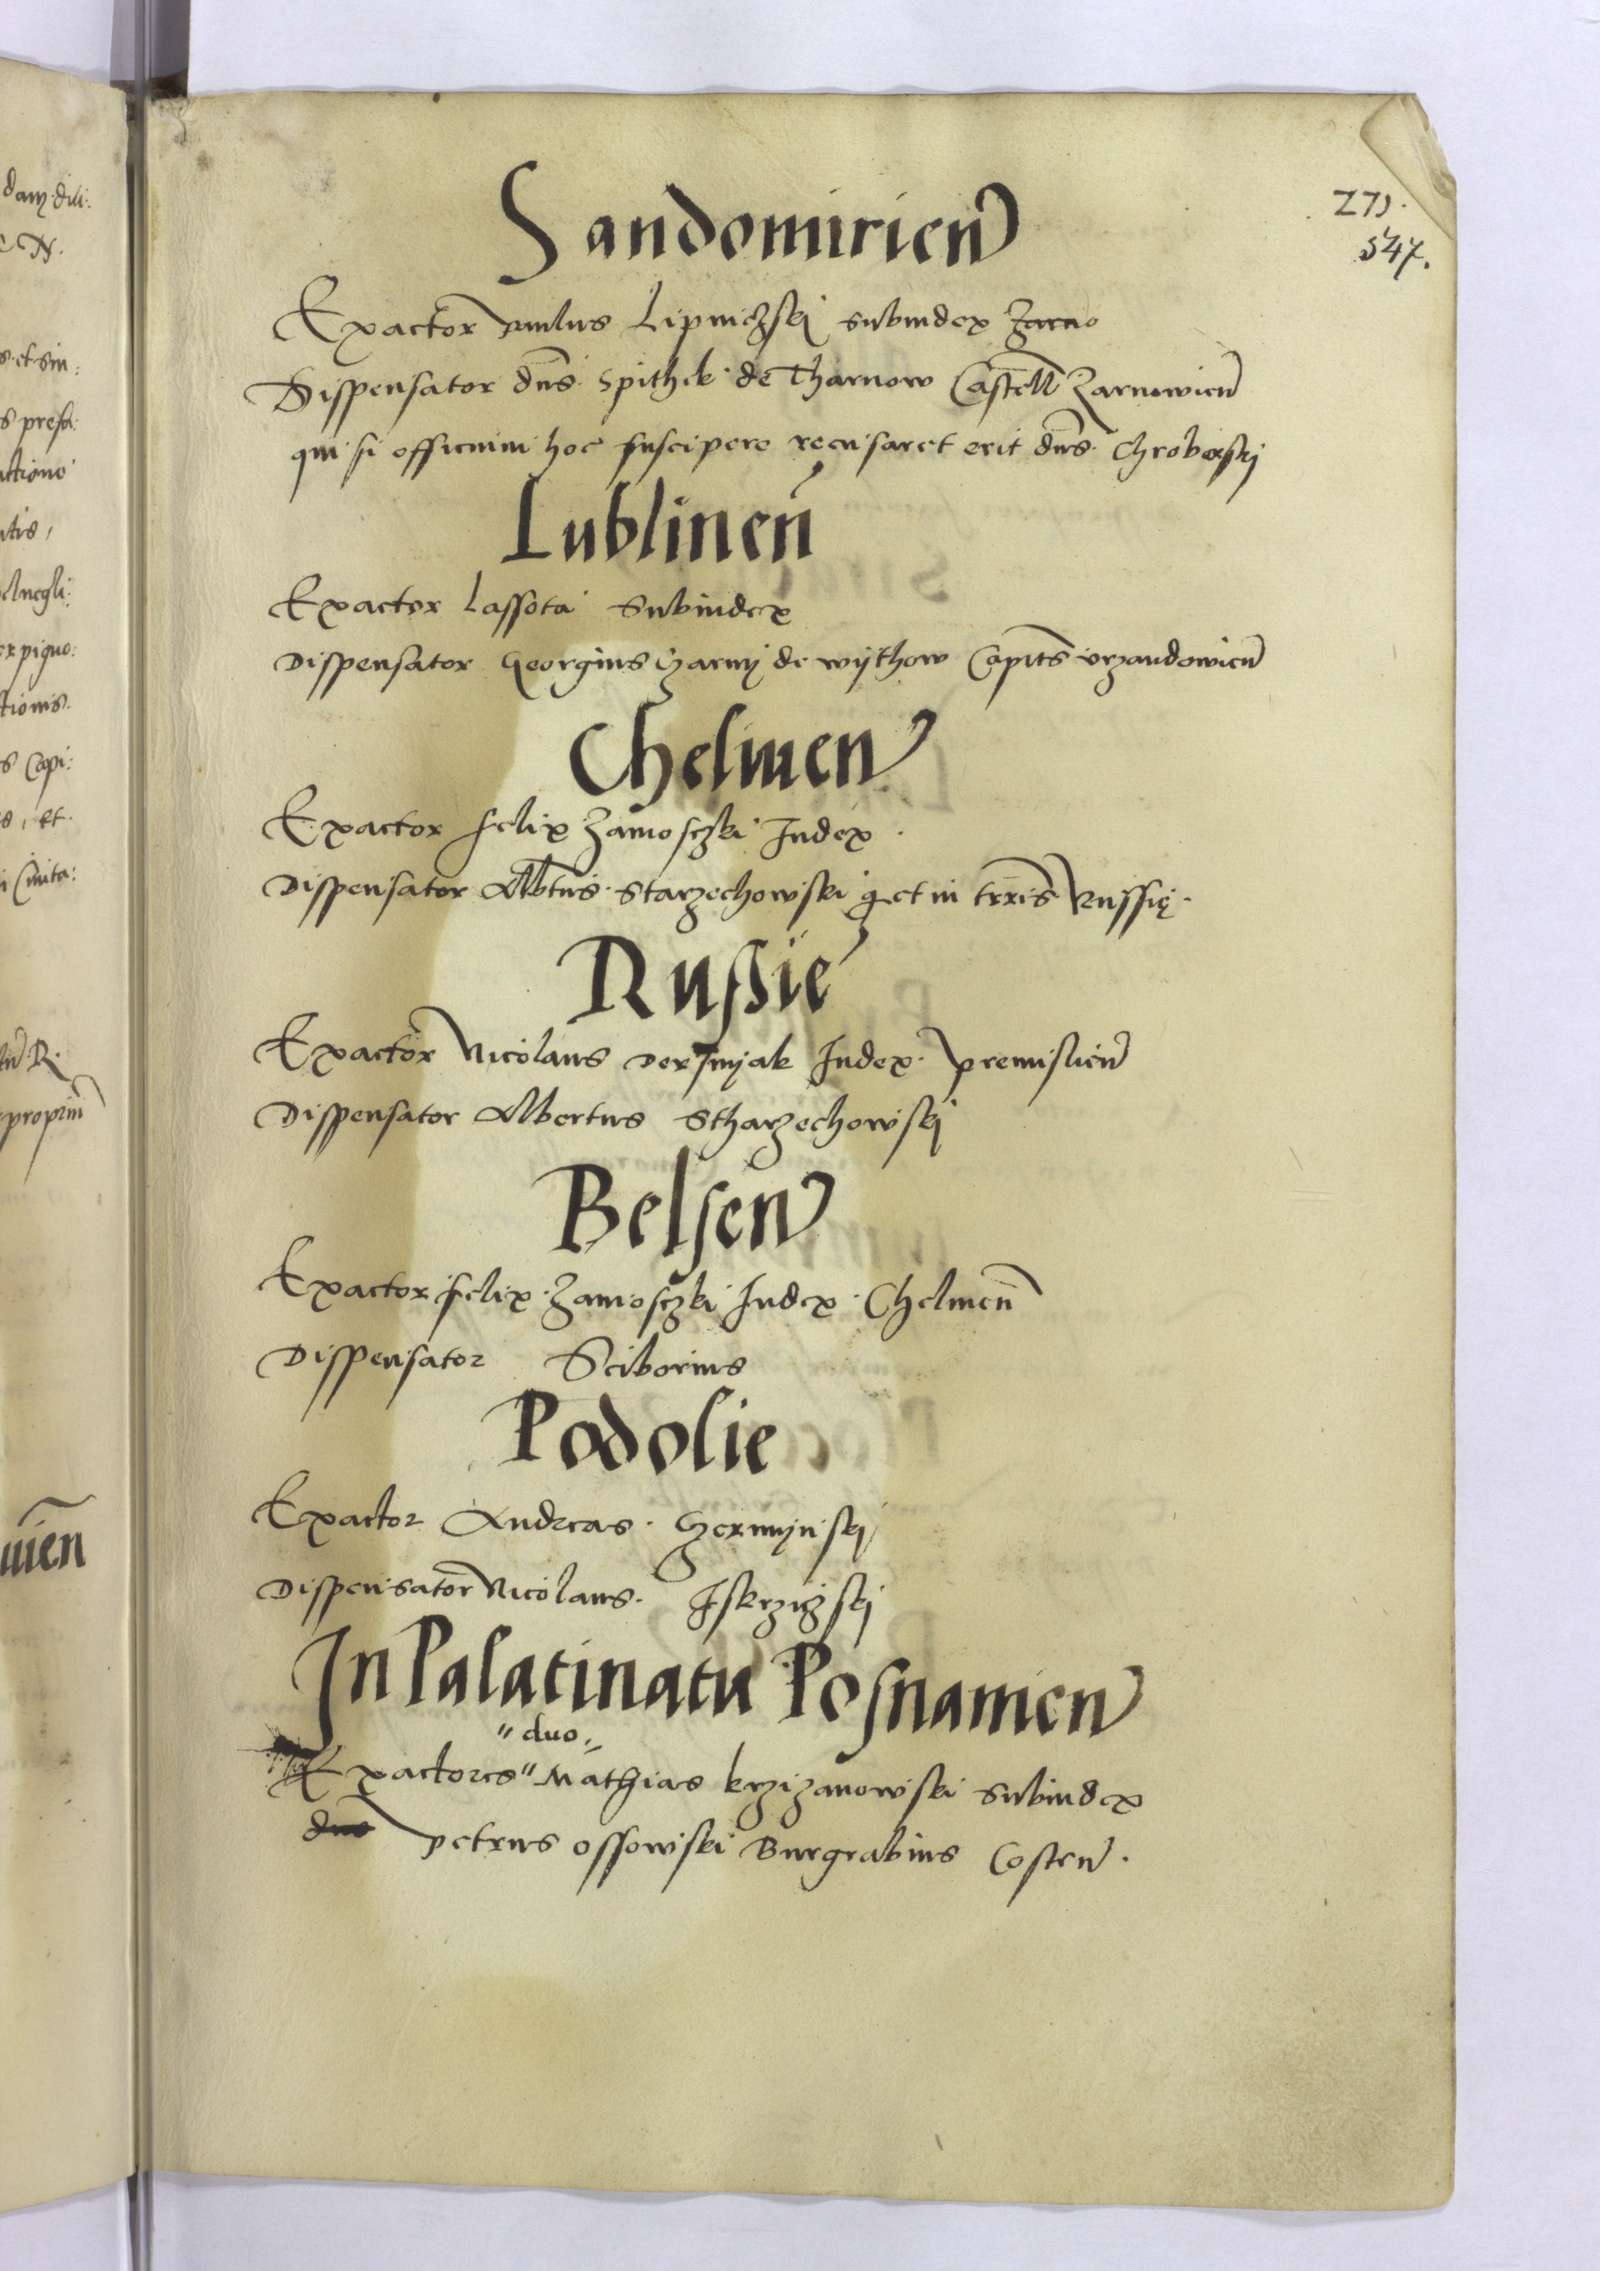 271.
547.
Sandomirien
Exactor Paulus Lipniczski Subiudex Zarno
Dispensator dns Spithek de Tharnow Castell Zarnowien
qui si officium hoc suscipere recusaret erit dns Chroberski
Lublinen
Exactor Lassota Subiudex
Dispensator Georgius Czarny de Wythow Capits Urzandowien
Chelmen
Exactor Felix Zamosczki Iudex.
Dispensator Albtus Starzechowski q et in terris Russię.
Russie
Exactor Nicolaus Dersnyak Iudex premislien
Dispensator Albertus Stharzechowski
Belsen
Exactor Felix Zamosczki Iudex Chelmen
Dispensator Sciborius
Podolie
Exactor Andreas Czerminski
Dispensator Nicolaus Iskrziczski
In Palatinatu Posnanien
" duo "
Exactores " Mathias krzizanowski Subiudex
duo petrus Ossowski Burgrabius Costen.